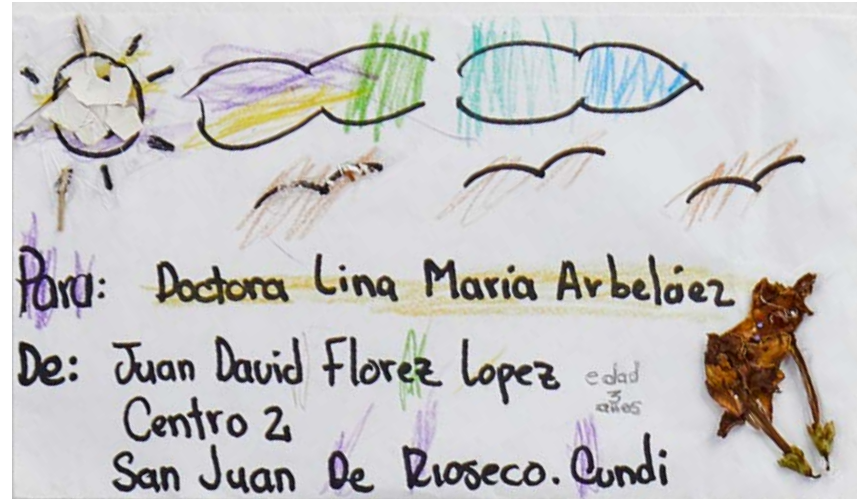 Para: Doctora Lina María Arbeláez
De: Juan David Florez Lopez
edad
3
años
Centro 2
San Juan De Rioseco. Cundi